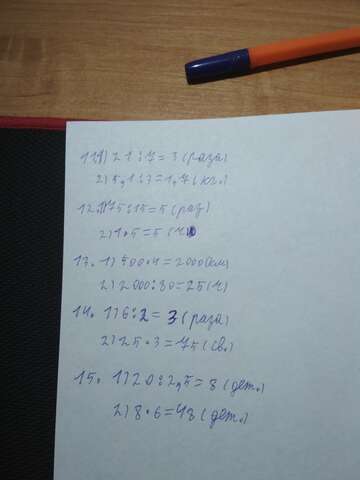 11. 1) 21:7=3 (раза)
2) 5,1:3=1,7 (кг.)
12. 1) 75:15=5 (раз)
2) 1•5=5 (ч)
13. 1) 500•4=2000 (км)
2) 2000:80=25 (ч)
14. 1) 6:2=3 (раза)
2) 25•3=75 (св.)
15. 1) 20:2,5=8 (дет.)
2) 8•6=48 (дет.)